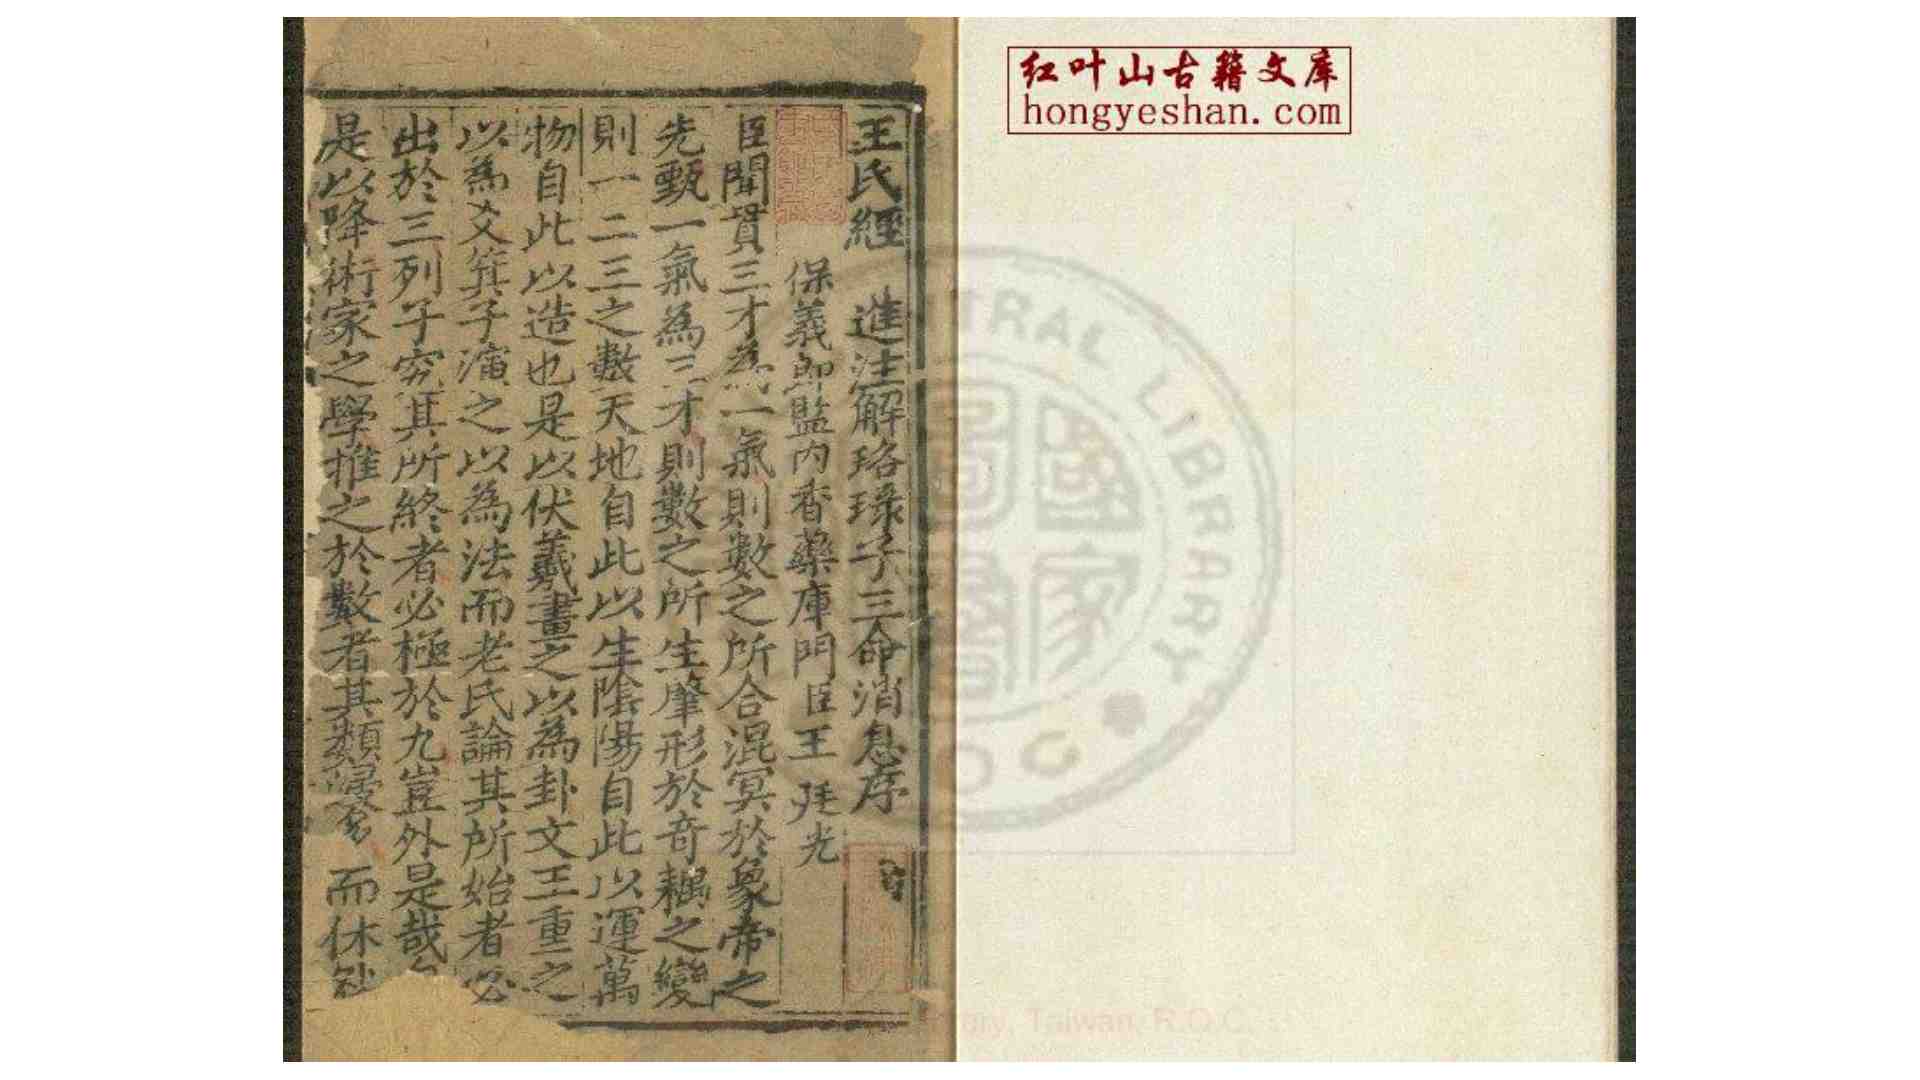 红叶山古籍文库
hongyeshan.com
王氏經 進注解珞琭子三命消息序
保義郎監内香藥庫門臣王 廷光
臣聞貫三才為一氣則數之所合混冥於象帝之
先甄一氣為三才則數之所生肇形於竒耦之變
則一二三之數天地自此以生陰陽自此以運萬
物自此以造也是以伏羲畫之以為卦文王重之
以為爻箕子演之以為法而老氏論其所始者必
出於三列子究其所終者必極於九豈外是哉
是以降術家之學推之於數者其類寖多而休
CENTRAL LIBRARY
國家圖書
R.O.C.
Library, Taiwan, R.O.C.